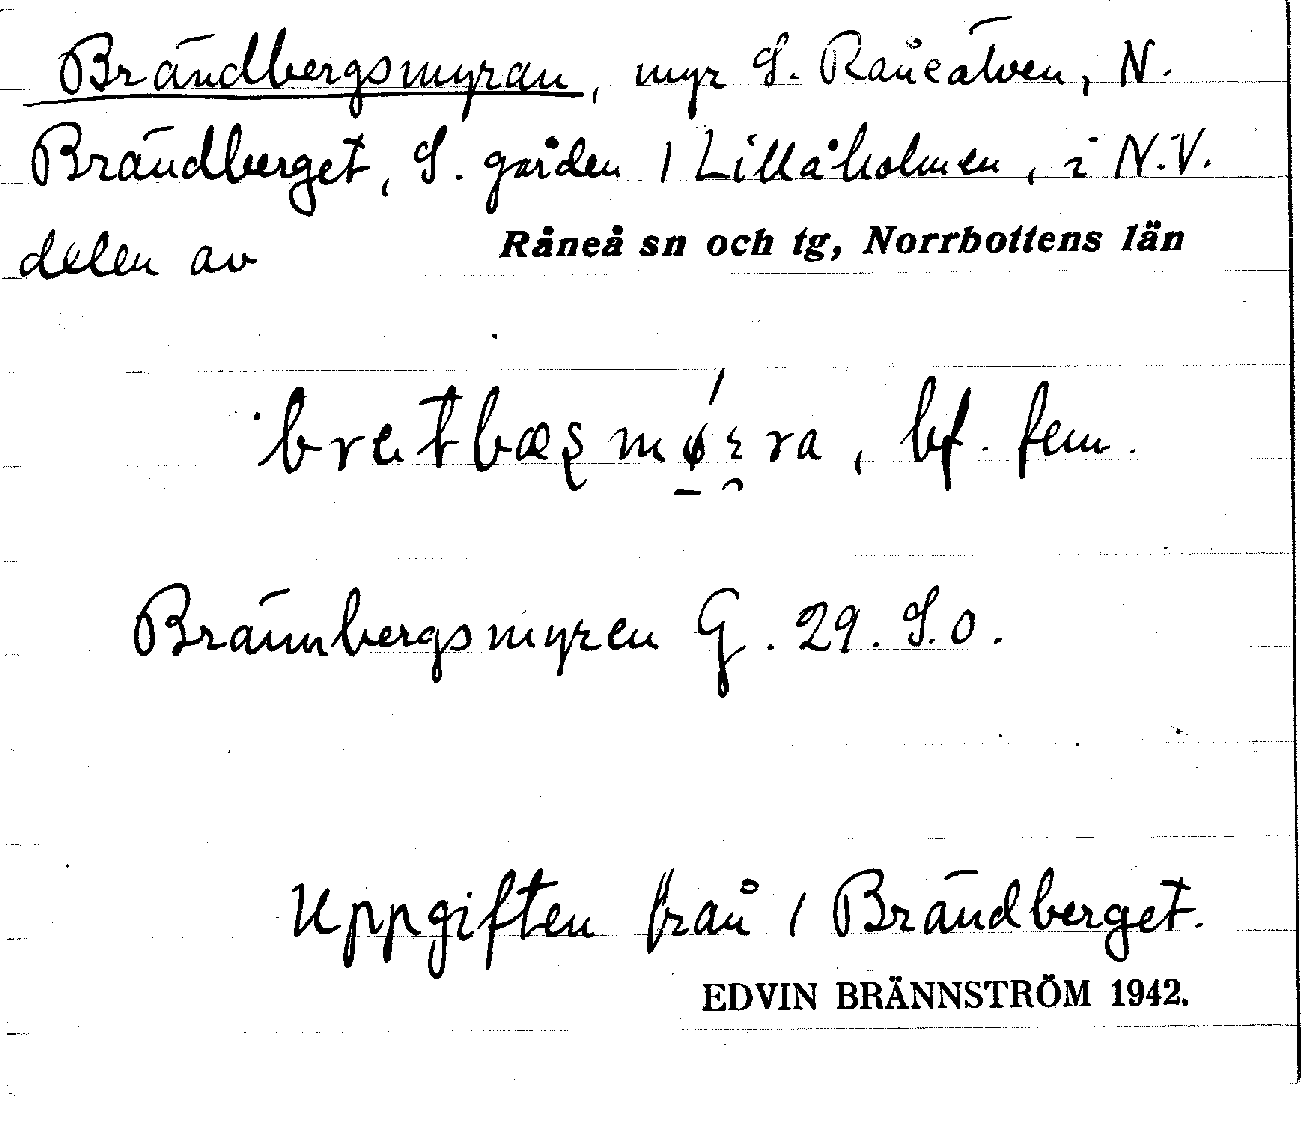 Brändbergsmyran, myr S. Råneälven, N.
Brändberget, S. gården / Lillåholmen, i N.V.
delen av Råneå sn och tg, Norrbottens län
bf. fem.
Brännbergsmyren G. 29. S.O.
Uppgiften från / Brändberget.
EDVIN BRÄNNSTRÖM 1942.